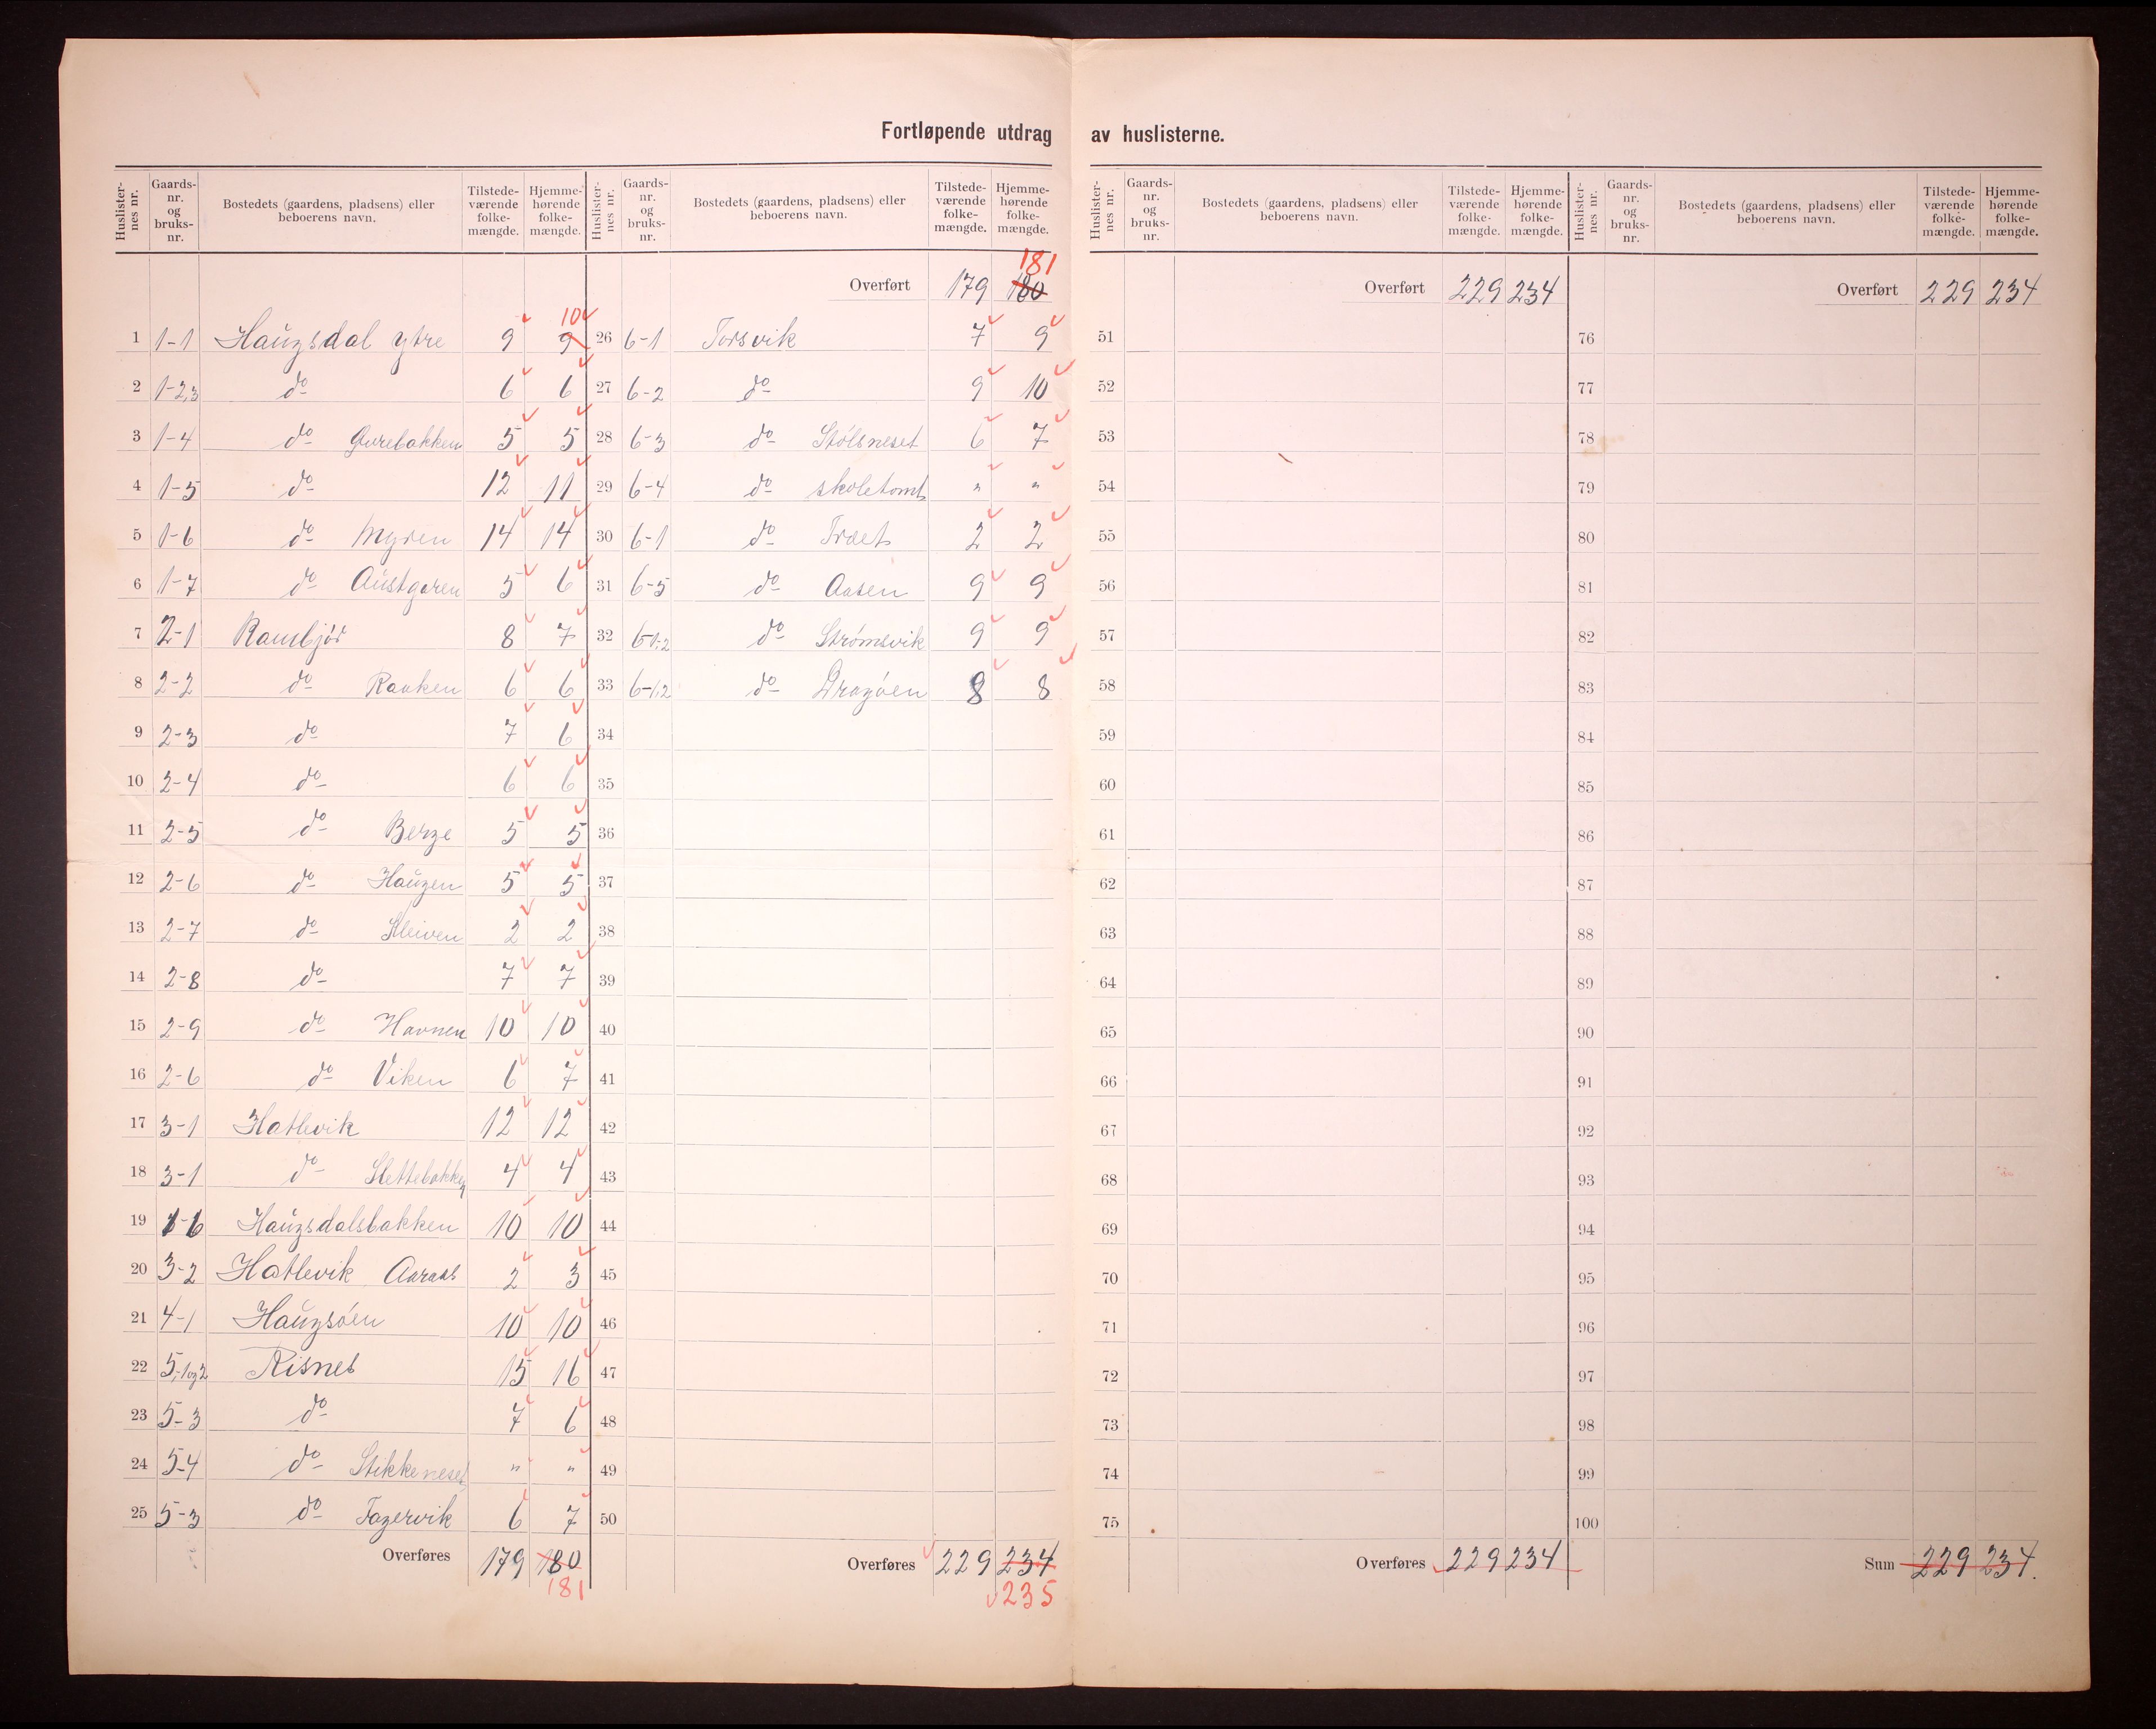 Fortløpende utdrag av huslisterne.
Huslister-nes nr. Gaards-nr. og bruks-nr. Bostedets (gaardens, pladsens) eller beboerens navn. Tilstede-værende folke-mængde. Hjemme-hørende folke-mængde.
1 1-1 Haugsdal ytre 9 9 10
2 1-2,3 do 6 6
3 1-4 do Gurebakken 5 5
4 1-5 do 12 11
5 1-6 do Myren 14 14
6 1-7 do Austgaren 5 6
7 2-1 Rambjør 8 7
8 2-2 do Raaken 6 6
9 2-3 do 7 6
10 2-4 do 6 6
11 2-5 do Berge 5 5
12 2-6 do Haugen 5 5
13 2-7 do Kleiven 2 2
14 2-8 do 7 7
15 2-9 do Havnen 10 10
16 2-6 do Viken 6 7
17 3-1 Hatlevik 12 12
18 3-1 do Slettebakken 4 4
19 1-6 Haugsdalsbakken 10 10
20 3-2 Hatlevik Aaraas 2 3
21 4-1 Haugsøen 10 10
22 5-1og2 Risnes 15 16
23 5-3 do 7 6
24 5-4 do Stikkeneset " "
25 5-3 do Fagervik 6 7
Overføres 179 180
181
Huslister-nes nr. Gaards-nr. og bruks-nr. Bostedets (gaardens, pladsens) eller beboerens navn. Tilstede-værende folke-mængde. Hjemme-hørende folke-mængde.
181
Overført 179 180
26 6-1 Torsvik 7 9
27 6-2 do 9 10
28 6-3 do Stølsneset 6 7
29 6-4 do skoletomt " "
30 6-1 do Træet 2 2
31 6-5 do Aasen 9 9
32 6-1,2 do Strømsvik 9 9
33 6-1,2 do Dragøen 8 8
34
35
36
37
38
39
40
41
42
43
44
45
46
47
48
49
50
Overføres 229 234
235
Huslister-nes nr. Gaards-nr. og bruks-nr. Bostedets (gaardens, pladsens) eller beboerens navn. Tilstede-værende folke-mængde. Hjemme-hørende folke-mængde.
Overført 229 234
51
52
53
54
55
56
57
58
59
60
61
62
63
64
65
66
67
68
69
70
71
72
73
74
75
Overføres 229 234
Huslister-nes nr. Gaards-nr. og bruks-nr. Bostedets (gaardens, pladsens) eller beboerens navn. Tilstede-værende folke-mængde. Hjemme-hørende folke-mængde.
Overført 229 234
76
77
78
79
80
81
82
83
84
85
86
87
88
89
90
91
92
93
94
95
96
97
98
99
100
Sum 229 234.